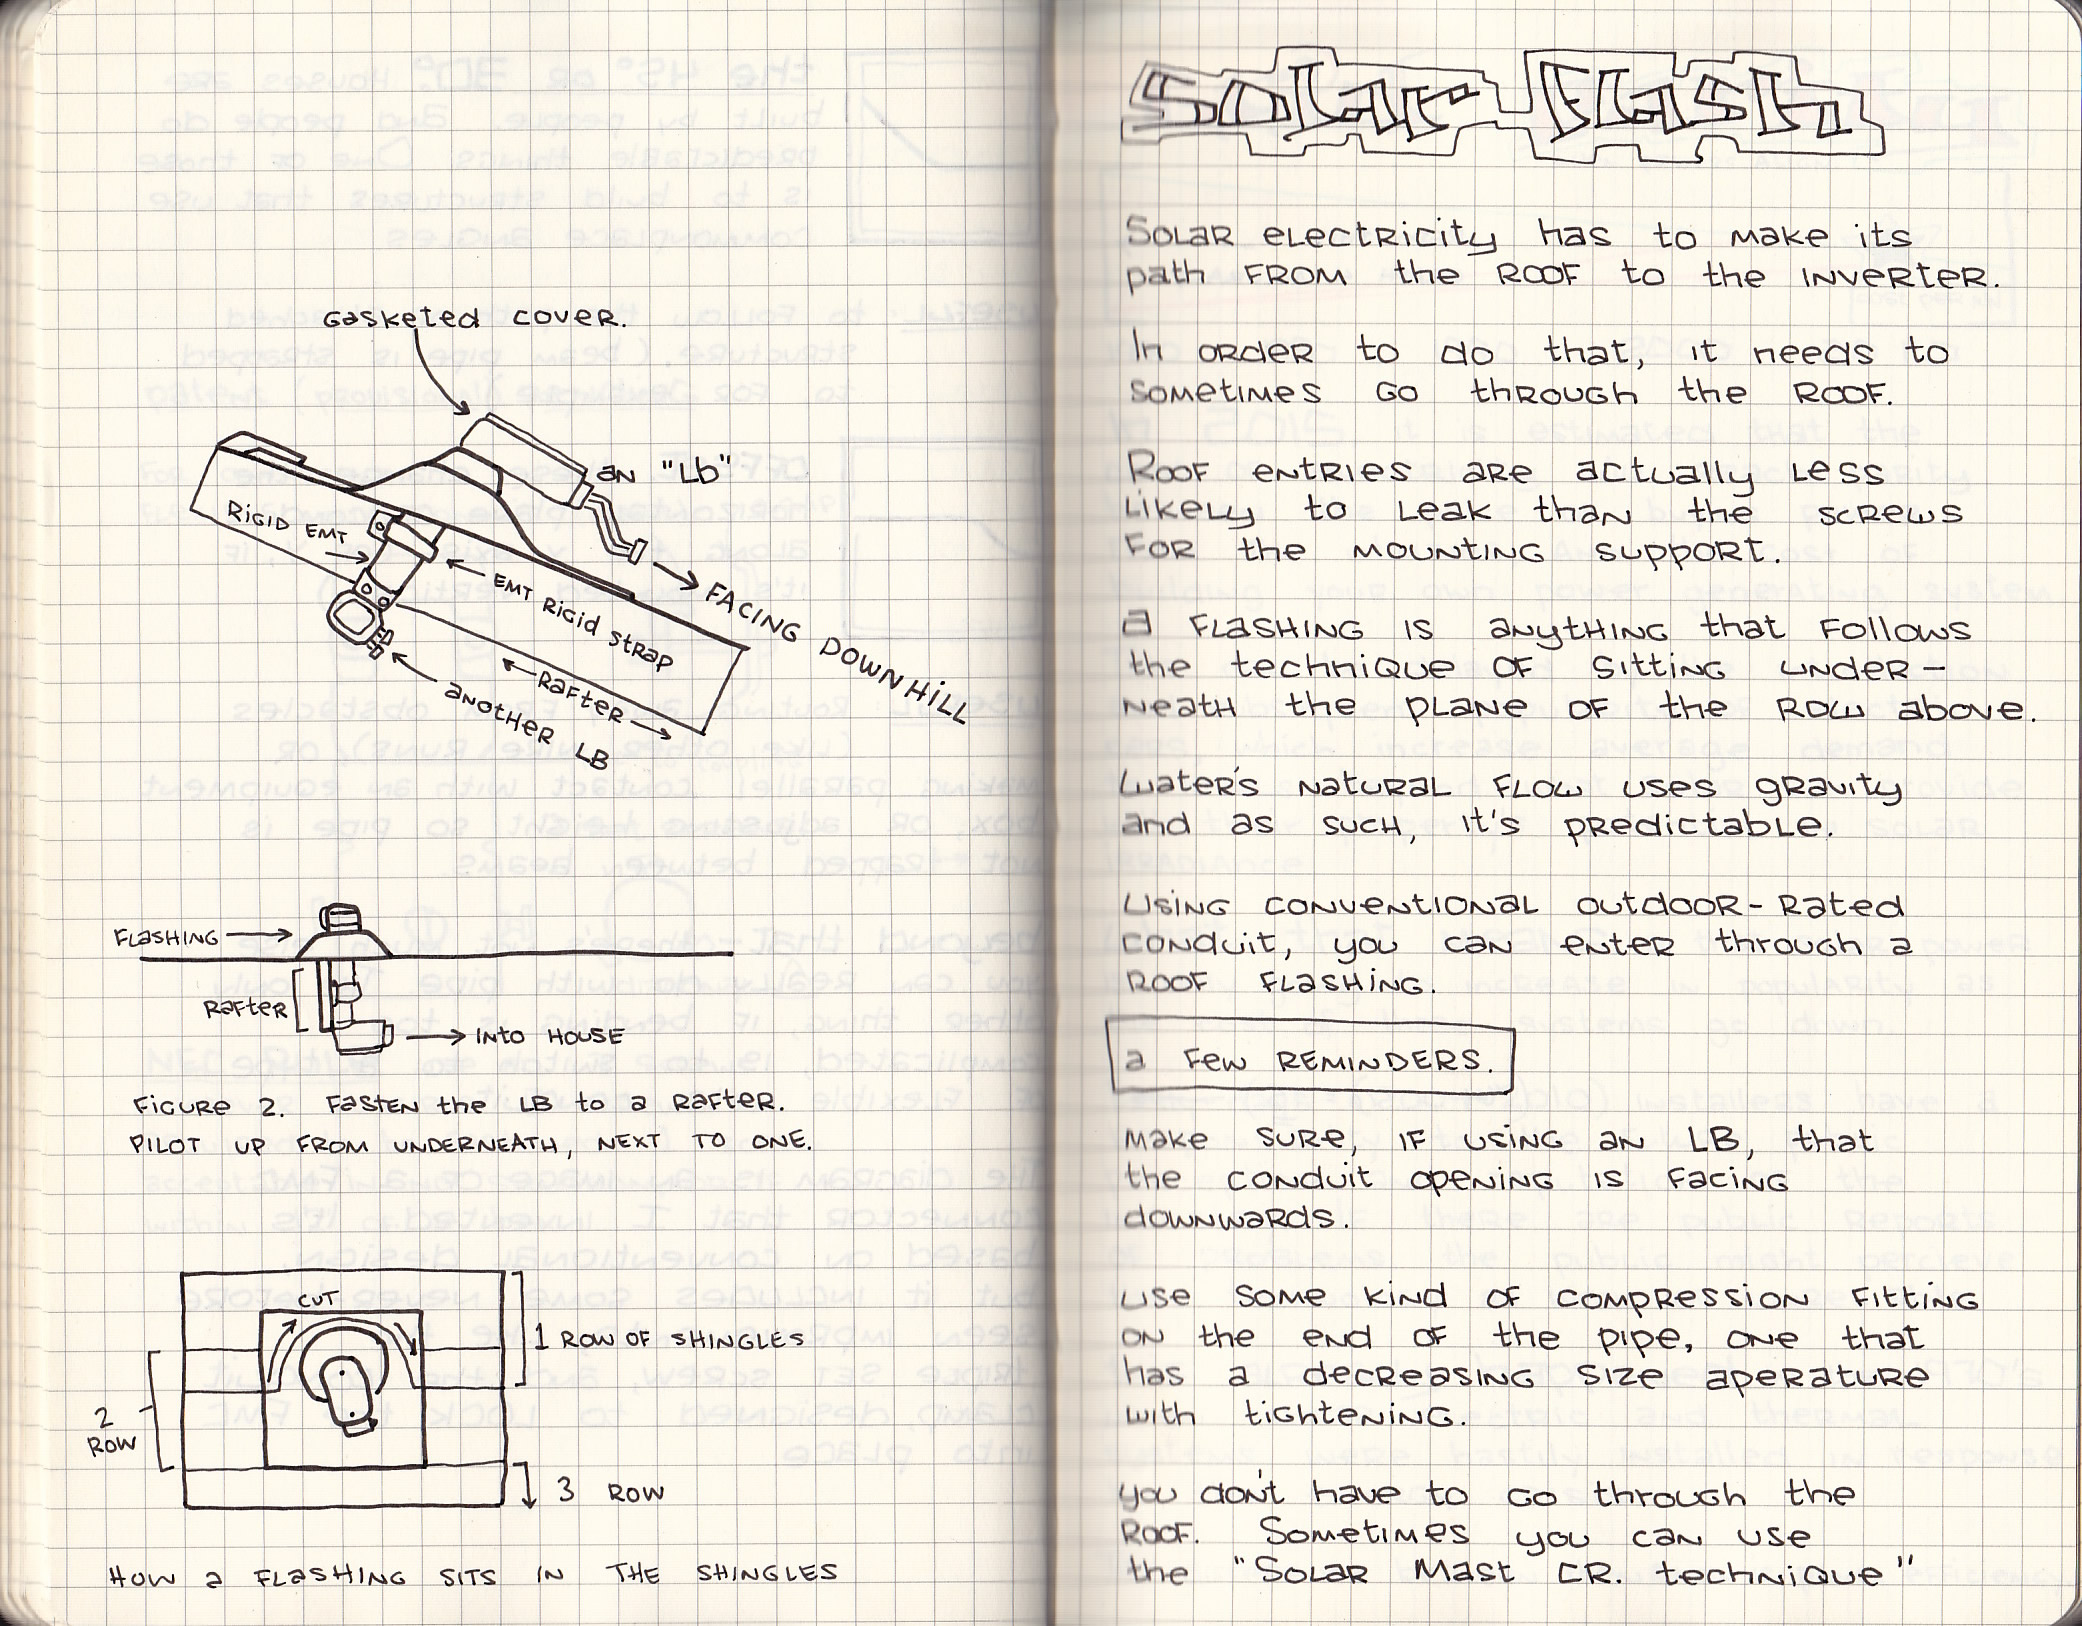 Gasketed cover.
an "Lb"
Rigid EMT
EMT Rigid Strap
Facing Downhill
Rafter
another LB
Flashing
Rafter
into house
Figure 2. Fasten the LB to a rafter.
Pilot up from underneath, next to one.
cut
1 row of shingles
2
row
3 row
How a flashing sits in the shingles
Solar Flash
Solar electricity has to make its
path from the roof to the inverter.
In order to do that, it needs to
sometimes go through the roof.
Roof entries are actually less
likely to leak than the screws
for the mounting support.
A flashing is anything that follows
the technique of sitting under-
neath the plane of the row above.
Water's natural flow uses gravity
and as such, it's predictable.
Using conventional outdoor-rated
conduit, you can enter through a
roof flashing.
a few reminders.
make sure, if using an LB, that
the conduit opening is facing
downwards.
use some kind of compression fitting
on the end of the pipe, one that
has a decreasing size aperature
with tightening.
you don't have to go through the
roof. Sometimes you can use
the "Solar Mast CR. technique"